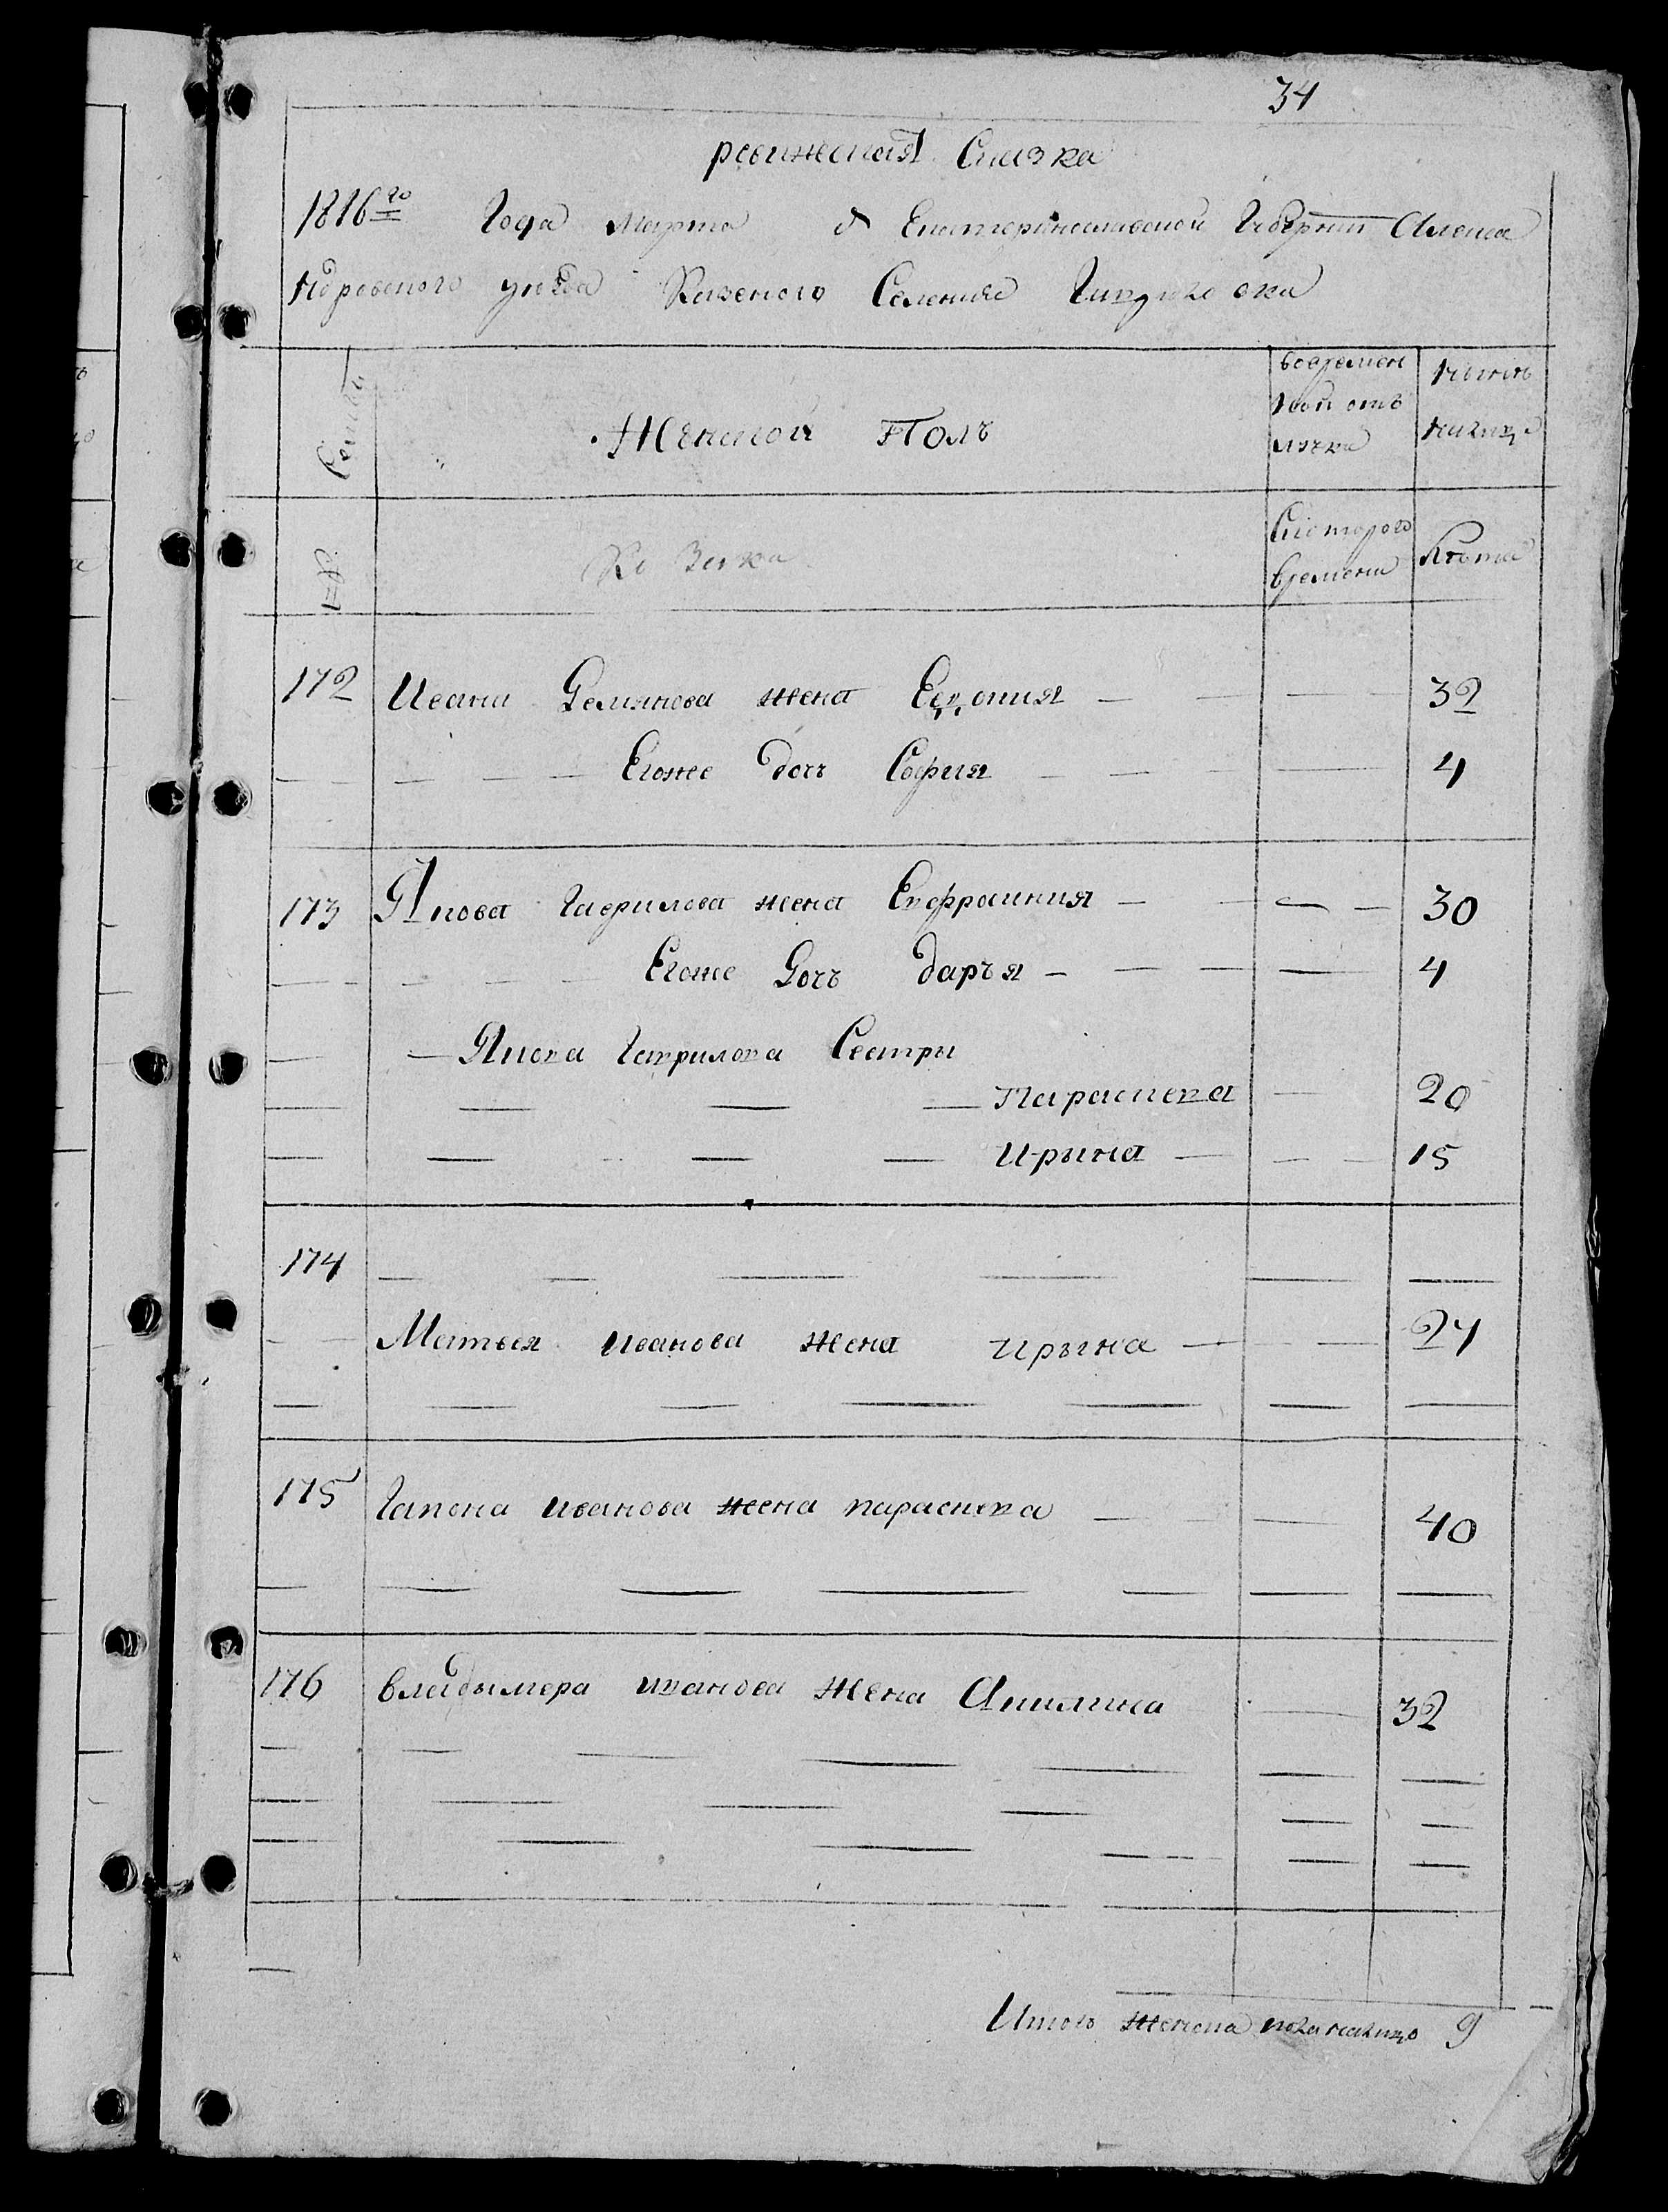 34
ревижская Сказка
1816го Года Марта д Екатеринославской Губернии Алекса
ндровского уезда Казеного Селения
Семьи
Женской Полъ
вовремен
ной отъ
лучке
нынѣ
на лицо
№
Козаки
Скоторого
времени
Лѣта
172 Ивана Демянова жена Евдокия — — — 32
— — — — Егоже дочь София — — — — 4
173 Якова Гаврилова жена Евфрасиния — — — — 30
— — — — — Егоже Дочь дарья — — — — 4
— — Якова Гаврилова Сестры
— — — — Параскева — 20
— — — — — Ирына — — — 15
174 — — — — — —
— — Матвея иванова жена ирына — — — 24
— — — — — — —
175 Гапона иванова жена параскева — — — 40
— — — — — — —
176 владымера иванова жена Акилина — 32
— — — — — — —
— — — — — —
— — — — — — —
—
Итого женска пола налицо 9